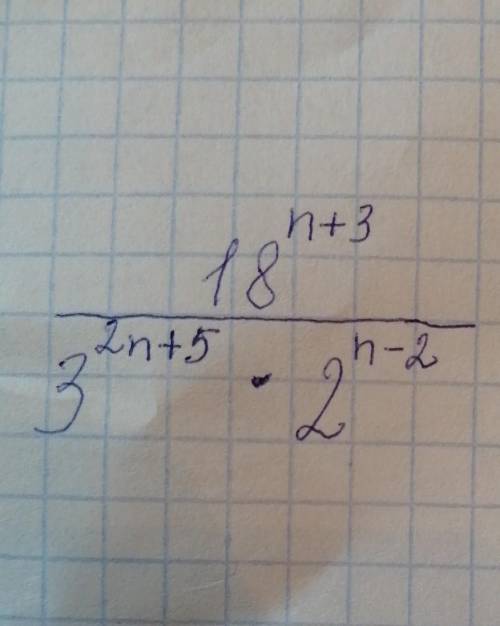 18^{n+3}
3^{2n+5} · 2^{n-2}